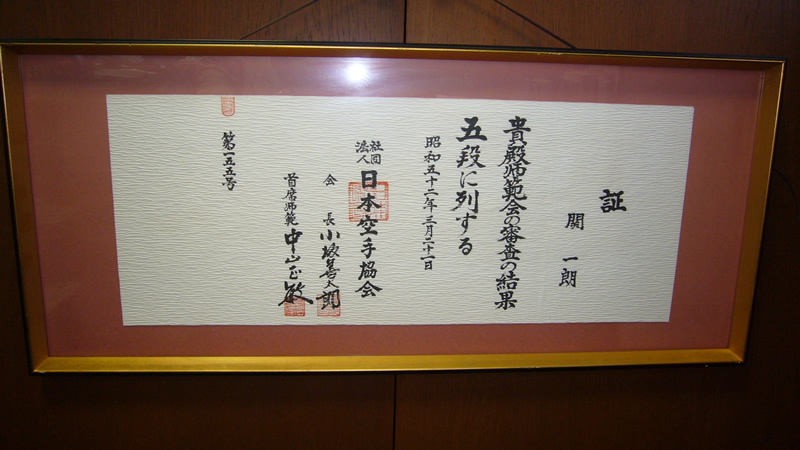 証
関 一朗
貴殿師範会の審査の結果
五段に列する
昭和五十二年三月二十一日
社団法人 日本空手協会
会長 小坂善太郎
首席師範 中山正敏
第一五五号